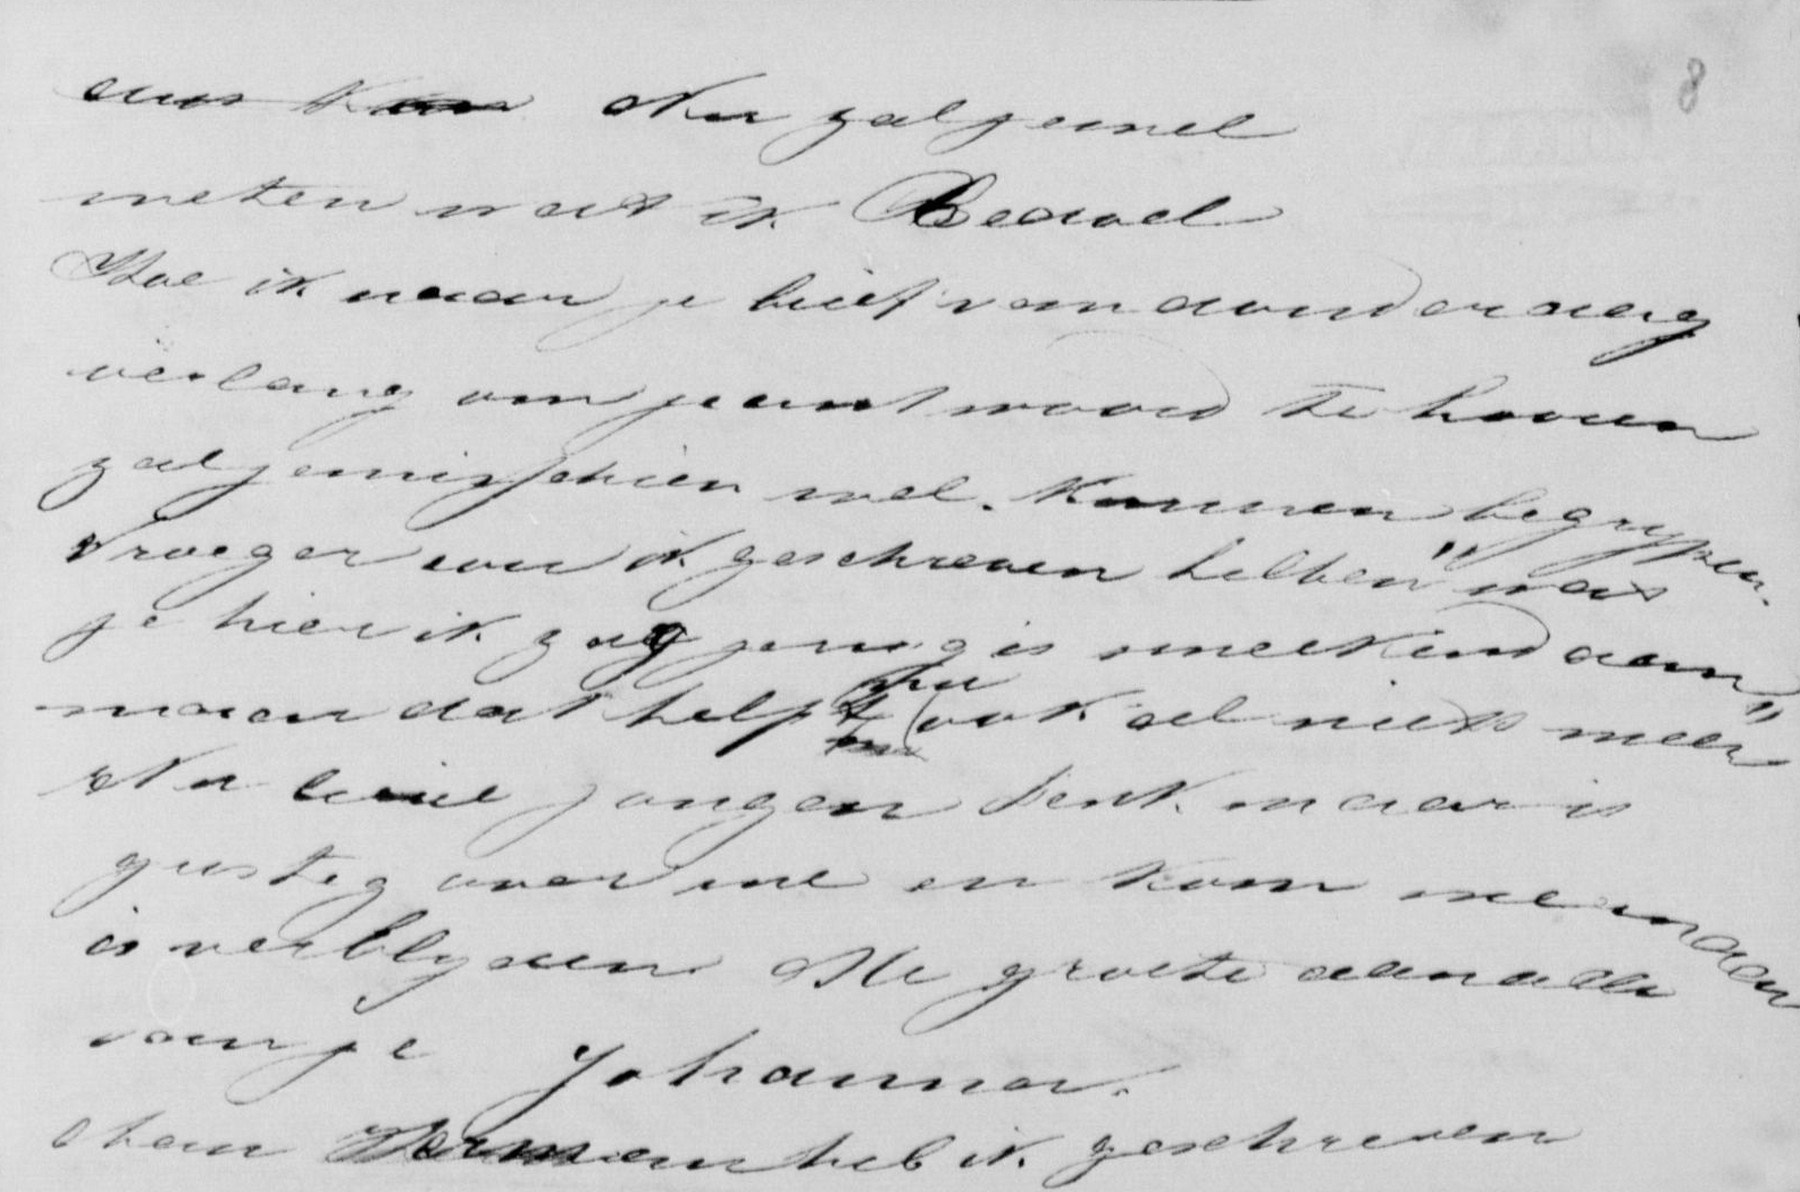 8
Nu zal je wel
weten wat ik Bedoel
Hoe ik naar je brief van donderdag
verlang om je antwoord te hooren
zal je misschien wel. Kunnen begrypen.
Vroeger zou ik geschreven hebben "was
je hier ik zag je nog is smeekend aan"
maar dat helpt nu ook al niets meer
Nu lieve jongen denk maar is
gustig over me en kom me maar
is verblyden De groete aan alle
van je Johanna.
Oom Herman heb ik geschreven